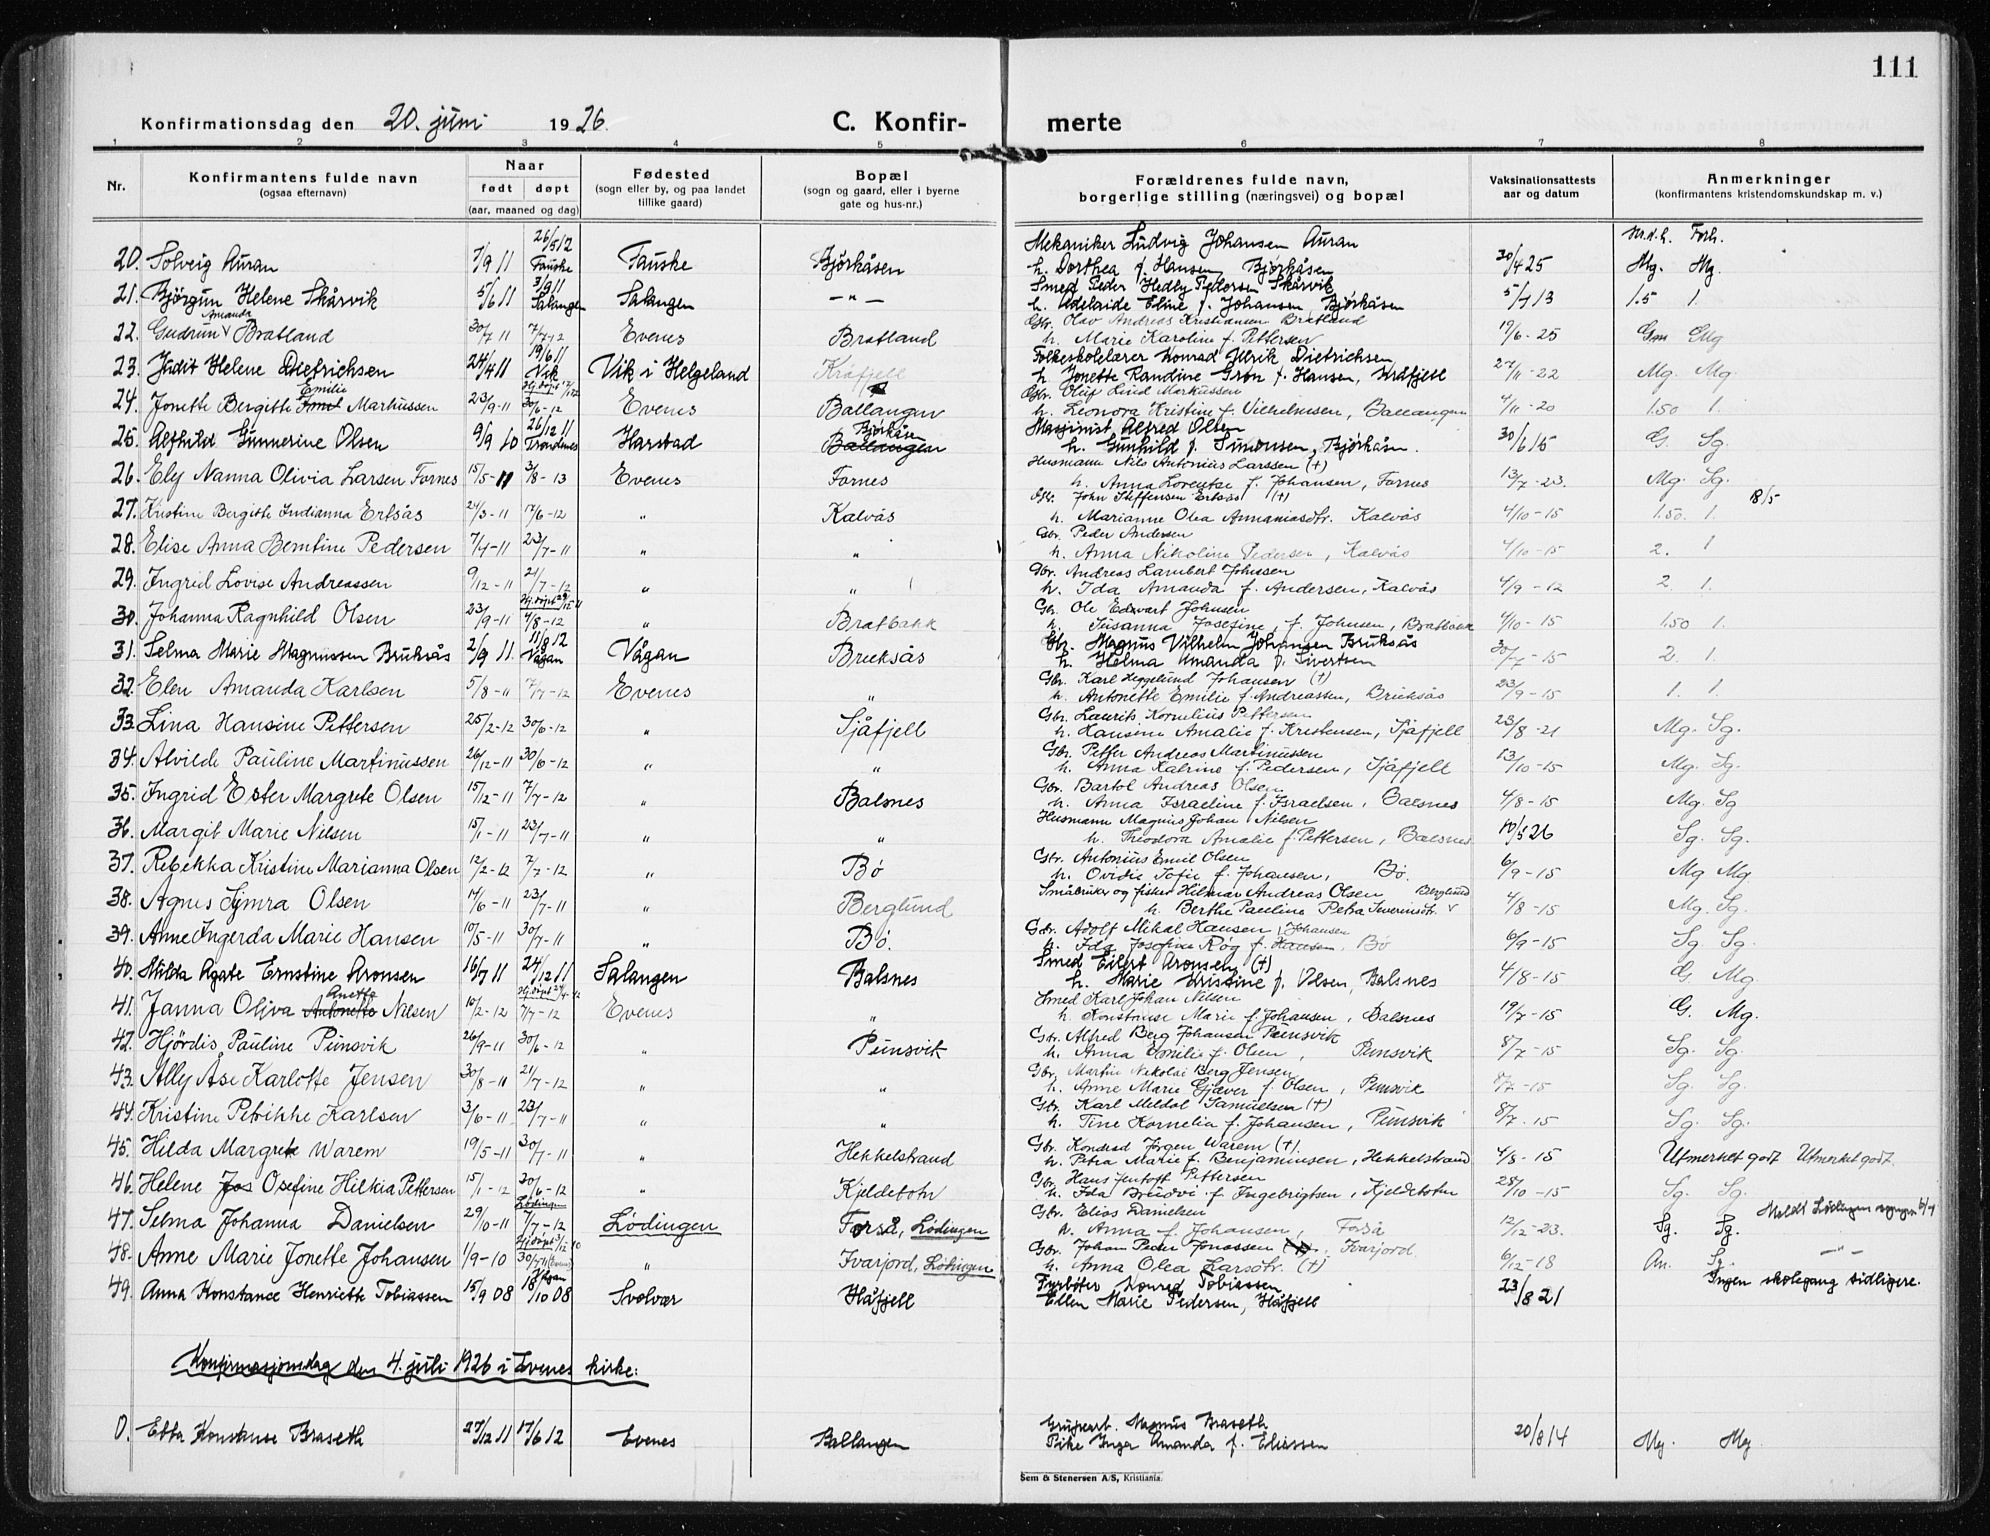 111
Konfirmationsdag den 20. juni 1926. C. Konfirmerte
1 2 3 4 5 6 7 8
Nr. Konfirmantens fulde navn (ogsaa efternavn) Naar født døpt (aar, maaned og dag) Fødested (sogn eller by, og paa landet tillike gaard) Bopæl (sogn og gaard, eller i byerne gate og hus-nr.) Forældrenes fulde navn, borgerlige stilling (næringsvei) og bopæl Vaksinationsattests aar og datum Anmerkninger (konfirmantens kristendomskundskap m. v.)
26/5 12 Mekaniker Ludvig Johansen Auran Forh.
20. Solveig Auran 7/9 11 Fauske Fauske Bjørkåsen h. Dorthea f. Hansen, Bjørkåsen 30/4 25 Mg. Mg.
3/9 11 Smed Peder Hedly Pedersen Skårvik
21. Bjørgun Helene Skårvik 5/6 11 Salangen Salangen — " — h. Adelaide Eline f. Johansen, Bjørkåsen 5/7 13 1.5 1.
Amanda Gbr. Olav Andreas Kristiansen Bratland
22. Gudrun Bratland 30/7 11 7/7-12 Evenes Bratland h. Marie Karoline f. Pettersen 19/6-25 Mg
19/6 11 Folkeskolelærer Konrad Ulrik Dietrichsen
23. Judit Helene Dietrichsen 24/4 11 Vik Vik i Helgeland Kråfjell h. Jonette Randine Grøn f. Hansen, Kråfjell 27/11-22 Mg. Mg.
Emilie Gbr. Oluf Lind Markussen
24. Jonette Bergitte Emel Markussen 23/9-11 30/6-12 Evenes Ballangen h. Leonora Kristine f. Vilhelmsen, Ballangen 4/11-20 1.50 1.
26/12 11 Bjørkåsen Maskinist Alfred Olsen
25. Alfhild Gunnerine Olsen 9/9 10 Trondenes Harstad Ballangen h. Gunhild f. Simonsen, Bjørkåsen. 30/6 15 G. Sg.
Husmann Nils Antonius Larssen (+)
26. Ely Nanna Olivia Larsen Fornes 15/5-11 3/8-13 Evenes Fornes h. Anna Lorentse f. Johansen, Fornes 13/7-23. Mg. Sg.
Gbr. John Steffensen Ertsås (+) 18/5
27. Kristine Bergitte Indianna Ertsås 24/3-11 17/6-12 " Kalvås h. Marianne Olea Annaniasdtr. Kalvås 4/10-15 1.50. 1.
Gbr. Peder Andersen
28. Elise Anna Berntine Pedersen 7/4-11 23/7-11 " " h. Anna Nikoline Pedersen, Kalvås 4/10-15 2. 1
Gbr. Andreas Lambert Johnsen
29. Ingrid Lovise Andreassen 9/12-11 21/7-12 " " h. Ida Amanda f. Andersen, Kalvås 4/9-12 2 1.
Gbr. Ole Edvart Johnsen
30. Johanna Ragnhild Olsen 23/9-11 4/8-12 " Bratbakk h. Susanna Josefine, f. Johnsen, Bratbakk 4/10-15 1.50 1.
11/8 12 Gbr. Magnus Vilhelm Johansen Bruksås
31. Selma Marie Magnussen Bruksås 2/9 11. Vågan Vågan Bruksås h. Helma Amanda f. Sivertsen 30/7-15 2. 1.
Gbr. Karl Heggelund Johansen (+)
32. Elen Amanda Karlsen 5/8-11 7/7-12 Evenes " h. Antonette Emilie f. Andreassen, Bruksås 23/9-15 1. 1.
Gbr. Laurits Kornelius Pettersen
33. Lina Hansine Pettersen 25/2-12 30/6-12 " Sjåfjell h. Hansine Amalie f. Kristensen, Sjåfjell 23/8-21 Mg. Sg.
Gbr. Petter Andreas Martinussen
34. Alvilde Pauline Martinussen 26/12-11 30/6-12 " " h. Anna Katrine f. Pedersen, Sjåfjell 13/10-15 Mg. Sg.
Gbr. Bartol Andreas Olsen
35. Ingrid Ester Margrete Olsen 15/12-11 7/7-12 " Balsnes h. Anna Israeline f. Israelsen, Balsnes 4/8-15 Mg. Sg
Husmann Magnus Johan Nilsen
36. Margit Marie Nilsen 15/1-11 23/7-11 " " h. Theodora Amalie f. Pettersen, Balsnes 10/5 26 Sg. Sg.
Gbr. Antonius Emil Olsen
37. Rebekka Kristine Marianna Olsen 12/2-12 7/7-12 " Bø h. Ovidie Sofie f. Johansen, Bø. 6/9-15 Mg Mg.
Småbruker og fisker Hilmar Andreas Olsen Berglund
38. Agnes Symra Olsen 14/6-11 23/7-11 " Berglund h. Berthe Pauline Petra Severinsdtr. 4/8-15 Mg. Sg.
Gbr. Adolf Mikal Hansen Johansen
39. Anne Ingerda Marie Hansen 10/5-11 30/7-11 " Bø. h. Ida Josefine Røg f. Hansen, Bø 6/9-15 Sg. Sg.
Smed Eilert Aronsen (+)
40. Milda Agate Ernstine Aronsen 16/7 11 24/12 11 Salangen Balsnes h. Marie Kristine f. Olsen, Balsnes 4/8-15 G. Mg.
Anette Smed Karl Johan Nilsen
41. Janna Oliva Antonette Nilsen 10/2-12 7/7-12 Evenes " h. Konstanse Marie f. Johansen, Balsnes 19/7-15 G. Mg.
Gbr. Alfred Berg Johansen Pünsvik
42. Hjørdis Pauline Pünsvik 26/9-11 30/6-12 " Pünsvik h. Anna Emilie f. Olsen, Punsvik 8/7-15 Sg. Sg.
Gbr. Martin Nikolai Berg Jensen
43. Ally Åse Karlotte Jensen 30/8-11 21/7-12 " " h. Anne Marie Gjæver f. Olsen, Punsvik 8/7-15 Sg. Sg.
Gbr. Karl Meldal Samuelsen (+)
44. Kristine Petrikke Karlsen 3/6-11 23/7-11 " " h. Tine Kornelia f. Johansen, Pünsvik 8/7-15 Sg. Sg.
Gbr. Kondrad Jørgen Warem (+).
45. Hilda Margrete Warem 19/5-11 30/7-11 " Hekkelstrand h. Petra Marie f. Benjaminsen, Hekkelstrand 4/8-15 Utmerket godt Utmerket godt.
Gbr. Hans Jentoft Pettersen
46. Helene Jos Osefine Hilkia Pettersen 15/1-12 30/6-12 " Kjeldebotn h. Ida Brudvi f. Ingebrigtsen, Kjeldebotn 28/10-15 Sg. Sg.
Lødingen Gbr. Elias Danielsen Meldt Lødingen
47. Selma Johanna Danielsen 29/10-11 7/7-12 Lødingen Forså, Lødingen h. Anna f. Johansen, Forså 12/12-23. Sg. Sg.
Gbr. Johan Peder Jonassen, Ivarjord.
48. Anne Marie Jonette Johansen 1/9-10 30/7-11 " Ivarjord, Lødingen h. Anna Olea Larsdtr. (+) 6/12-18 An. Sg. — " —
Vågan Fyrbøter Konrad Tobiassen Ingen skolegang tidligere.
49. Anna Konstance Henriette Tobiassen 15/9 08 18/10 08 Svolvær Håfjell Ellen Marie Pedersen, Håfjell 23/8 21
Konfirmasjonsdag den 4. juli 1926 i Evenes kirke:
Grubearb. Magnus Braseth
0. Ebba Konstanse Braseth 27/12 11 17/6 12 Evenes Ballangen Pike Inga Amanda f. Eliassen 20/8 14 Mg. Mg
Sem & Stenersen A/S, Kristiania.